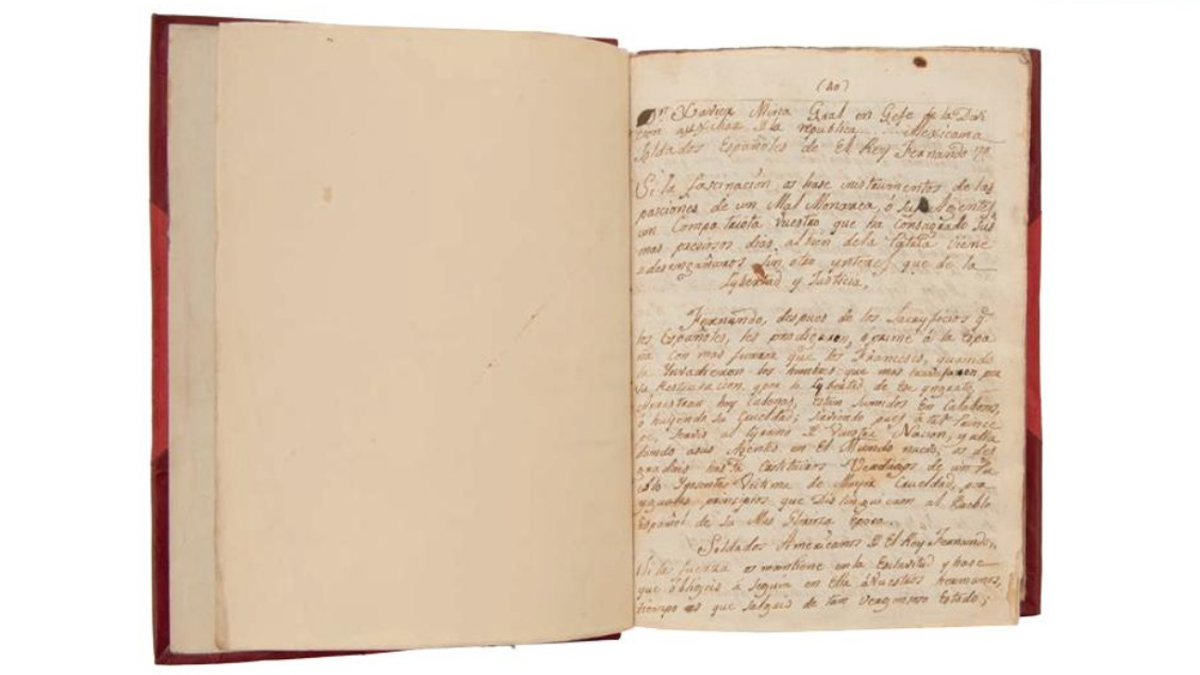 (40)
Dn. Xavier Mina Gral en Gefe de la Divi
cion auxiliar D la republica Mexicana
Soldados Españoles de El Rey Fernando 7º
Si la fascinacion os hase instrumentos de las
pasciones de un Mal Monarca, ó sus Agentes,
un Compatriota vuestro que ha consagrado sus
mas presiosos dias al bien dela Patria viene
adesengañaros sin otro ynteres que de la
lybertad y Justicia.
Fernando, despues de los Sacryficios q
los Españoles, les prodigaron, oprime á la Espa
ña con mas furia que los Franceses, quando
la Ynvadieron los hombres que mas travajaron por
su Restauracion y por la lybertad de ese yngrato
Arrastran hoy Cadenas, estan sumidos En Calabosos,
ó huyendo su Crueldad; Sirviendo pues á tal Princi
pe, Servis al tyrano D Vuestra Nacion, y alla
dando asus Agentes en El Mundo nuevo, os des
gradais hasta Costituiros Verdugos de un Pu
eblo Ynosente Victima de Mayor Crueldad, por
yguales principios que Distinguieron al Pueblo
Español de su Mas Gloriosa Epoca.
Soldados Americanos D El Rey Fernando,
Si la fuerza os mantiene en la Esclavitud y hase
que obligeis á seguir en Ella á Vuestros hermanos,
tiempo es que salgais de tam vergonsoso Estado;